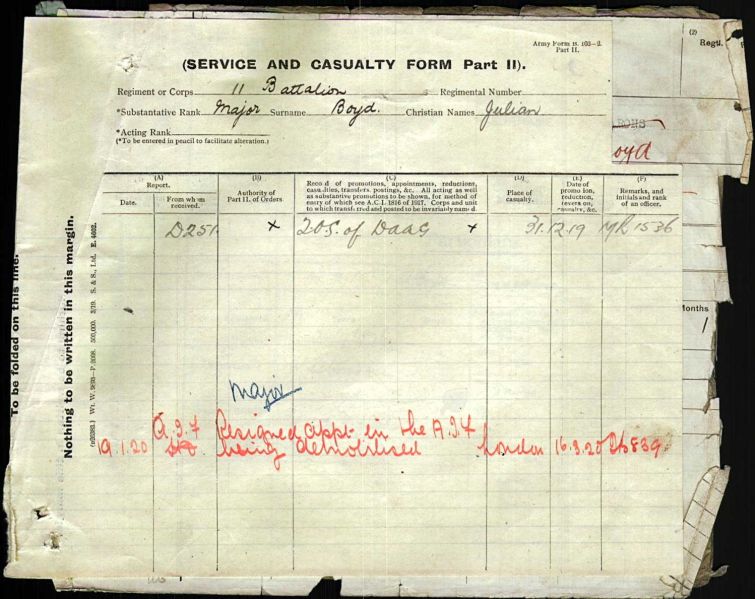 Army Form B. 103—2.
Part II.
(SERVICE AND CASUALTY FORM Part II).
Regiment or Corps 11 Battalion Regimental Number
*Substantative Rank Major Surname Boyd. Christian Names Julian
*Acting Rank
(*To be entered in pencil to facilitate alteration.)
(A)
Report.
Date.
From whom
received.
(B)
Authority of
Part II. of Orders
(C)
Record of promotions, appointments, reductions,
casualties, transfers, postings, &c. All acting as well
as substantive promotions to be shown, for method of
entry of which see A.C.I. 1816 of 1917. Corps and unit
to which transferred and posted to be invariably named.
(D)
Place of
casualty.
(E)
Date of
promotion,
reduction,
reversion,
casualty, &c.
(F)
Remarks, and
initials and rank
of an officer.
D251 x TOS. of DAAG x 31.12.19 MR 1536
Major
19.1.20 A.I.F Resigned appt in the A.I.F
being demobilised London 16.3.20
To be folded on this line.
Nothing to be written in this margin.
(2)
Regtl.
oyd
Months
1